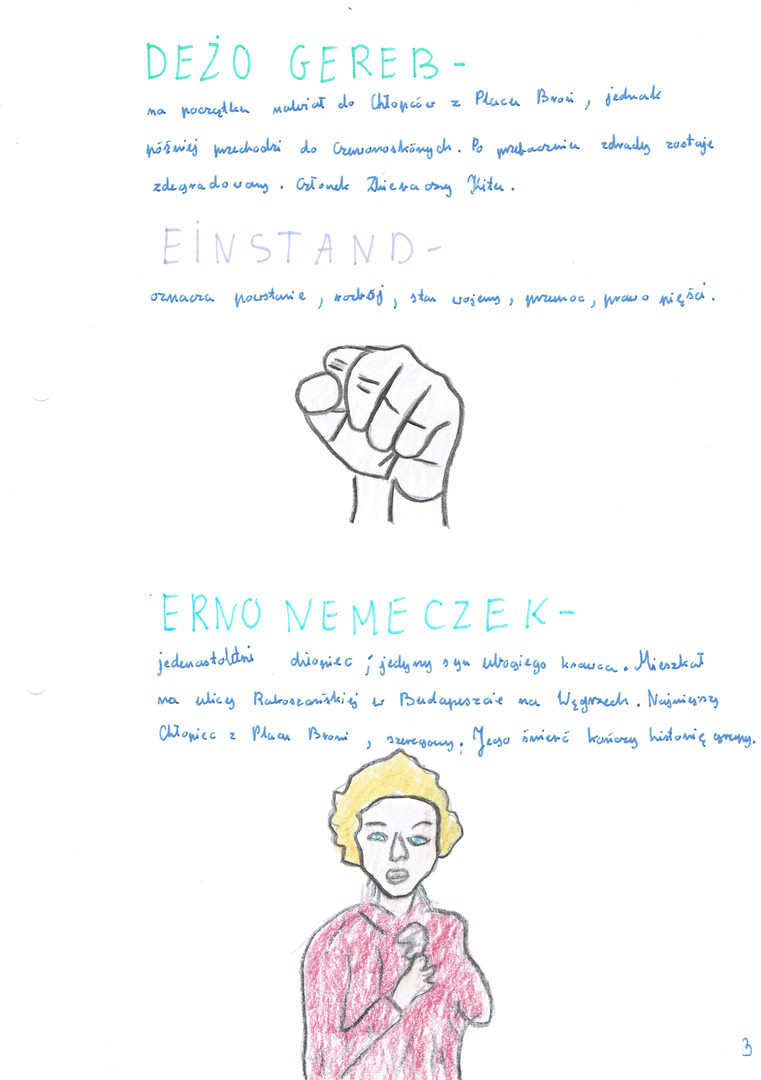 DEŻO GEREB -
na początku należał do Chłopców z Placu Broni, jednak
później przechodzi do Czerwonoskórych. Po przebaczeniu zdrady zostaje
zdegradowany. Członek Zbieraczy Kitu.
EINSTAND -
oznacza powstanie, rozbój, stan wojenny, przemoc, prawo pięści.
ERNO NEMECZEK -
jedenastoletni chłopiec, jedyny syn ubogiego krawca. Mieszkał
na ulicy Rakoszańskiej w Budapeszcie na Węgrzech. Najmniejszy
Chłopiec z Placu Broni, szeregowy. Jego śmierć kończy historię grupy.
3